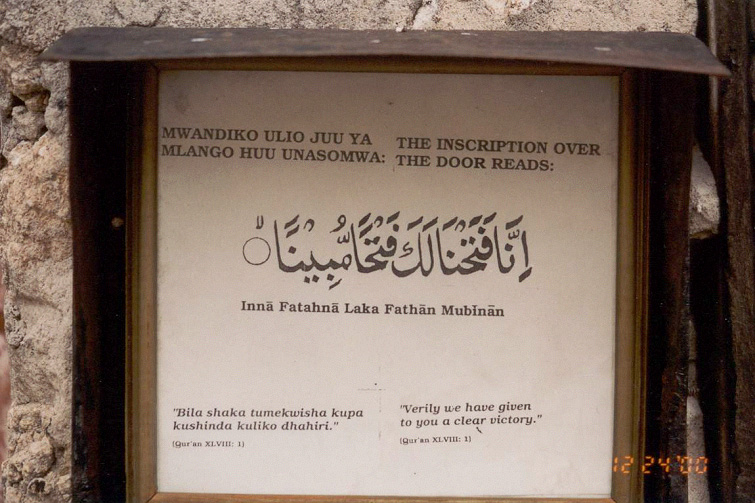 MWANDIKO ULIO JUU YA
MLANGO HUU UNASOMWA:
THE INSCRIPTION OVER
THE DOOR READS:
اِنَّا فَتَحْنَا لَكَ فَتْحًا مُّبِيْنًا
Innā Fatahnā Laka Fathān Mubīnān
"Bila shaka tumekwisha kupa
kushinda kuliko dhahiri."
(Qur'an XLVIII: 1)
"Verily we have given
to you a clear victory."
(Qur'an XLVIII: 1)
12 24 '00